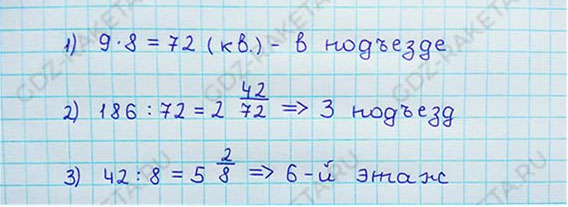 1) 9·8 = 72 (кв.) - в подъезде
2) 186 : 72 = 2 42/72 => 3 подъезд
3) 42 : 8 = 5 2/8 => 6-й этаж
GDZ-RAKETA.RU